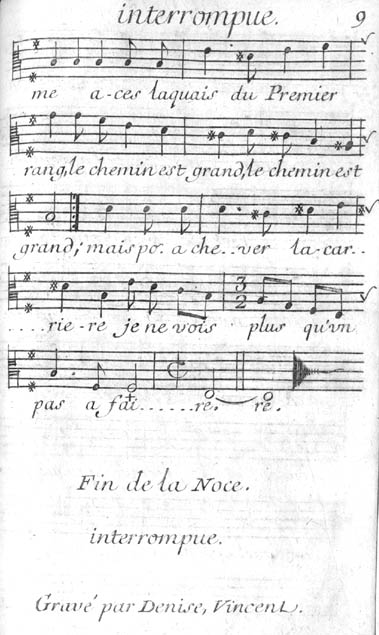 interrompue. 9
me a-ces laquais du Premier
rang, le chemin est grand, le chemin est
grand; mais po. a che..ver la-car..
....rie-re je ne vois plus qu'vn
3
2
pas a fai......re. re.
Fin de la Noce.
interrompue.
Gravé par Denise, Vincent.